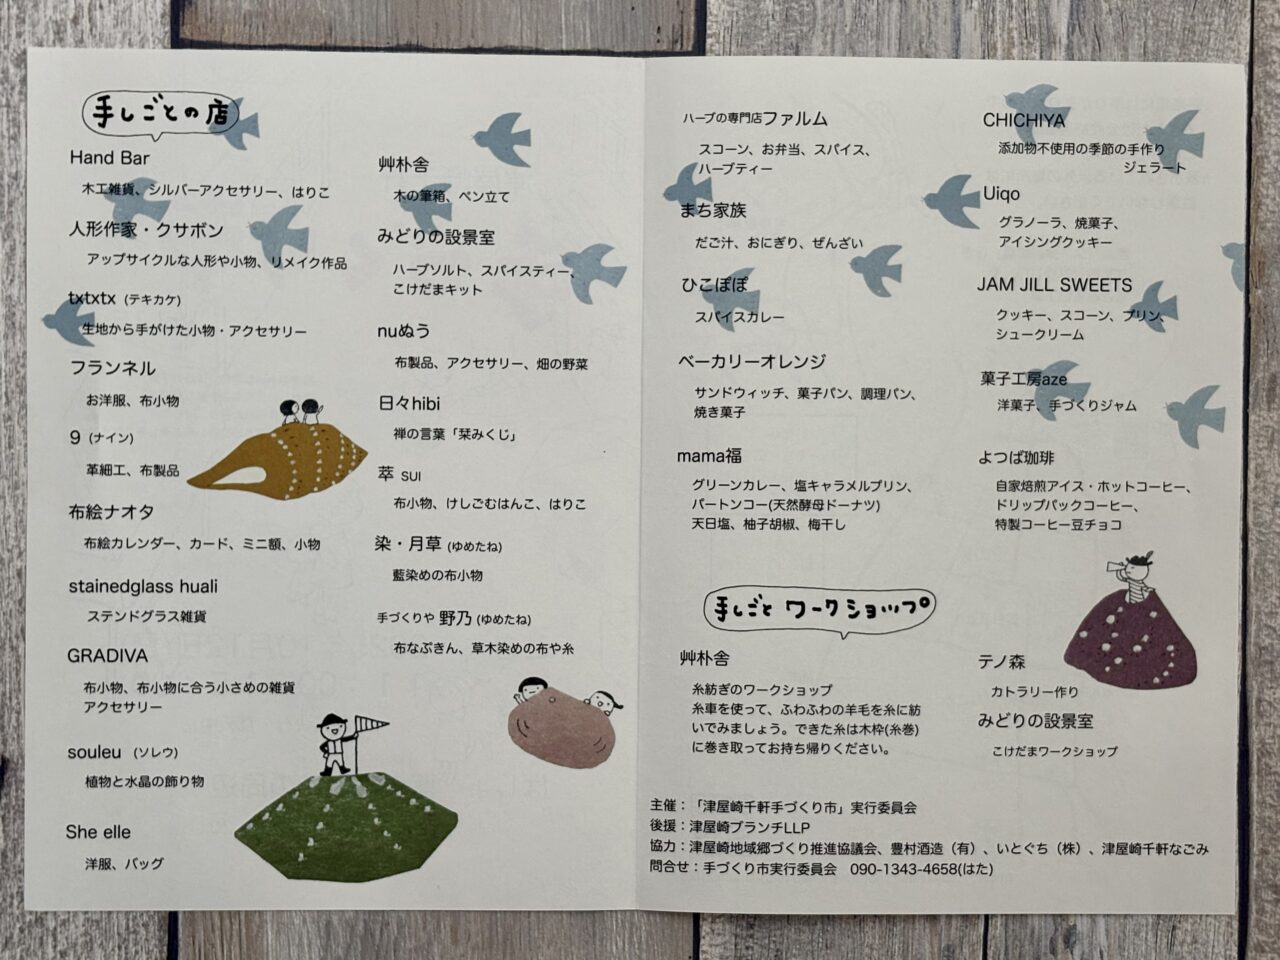 手しごとの店
Hand Bar
木工雑貨、シルバーアクセサリー、はりこ
人形作家・クサボン
アップサイクルな人形や小物、リメイク作品
txtxtx (テキカケ)
生地から手がけた小物・アクセサリー
フランネル
お洋服、布小物
9 (ナイン)
革細工、布製品
布絵ナオタ
布絵カレンダー、カード、ミニ額、小物
stainedglass huali
ステンドグラス雑貨
GRADIVA
布小物、布小物に合う小さめの雑貨
アクセサリー
souleu (ソレウ)
植物と水晶の飾り物
She elle
洋服、バッグ
艸朴舎
木の筆箱、ペン立て
みどりの設景室
ハーブソルト、スパイスティー、
こけだまキット
nuぬう
布製品、アクセサリー、畑の野菜
日々hibi
禅の言葉「栞みくじ」
萃 SUI
布小物、けしごむはんこ、はりこ
染・月草 (ゆめたね)
藍染めの布小物
手づくりや 野乃 (ゆめたね)
布なぷきん、草木染めの布や糸
ハーブの専門店ファルム
スコーン、お弁当、スパイス、
ハーブティー
まち家族
だご汁、おにぎり、ぜんざい
ひこぽぽ
スパイスカレー
ベーカリーオレンジ
サンドウィッチ、菓子パン、調理パン、
焼き菓子
mama福
グリーンカレー、塩キャラメルプリン、
パートンコー(天然酵母ドーナツ)
天日塩、柚子胡椒、梅干し
CHICHIYA
添加物不使用の季節の手作り
ジェラート
Uiqo
グラノーラ、焼菓子、
アイシングクッキー
JAM JILL SWEETS
クッキー、スコーン、プリン、
シュークリーム
菓子工房aze
洋菓子、手づくりジャム
よつば珈琲
自家焙煎アイス・ホットコーヒー、
ドリップパックコーヒー、
特製コーヒー豆チョコ
手しごと ワークショップ
艸朴舎
糸紡ぎのワークショップ
糸車を使って、ふわふわの羊毛を糸に紡
いでみましょう。できた糸は木枠(糸巻)
に巻き取ってお持ち帰りください。
テノ森
カトラリー作り
みどりの設景室
こけだまワークショップ
主催：「津屋崎千軒手づくり市」実行委員会
後援：津屋崎ブランチLLP
協力：津屋崎地域郷づくり推進協議会、豊村酒造（有）、いとぐち（株）、津屋崎千軒なごみ
問合せ：手づくり市実行委員会　090-1343-4658(はた)